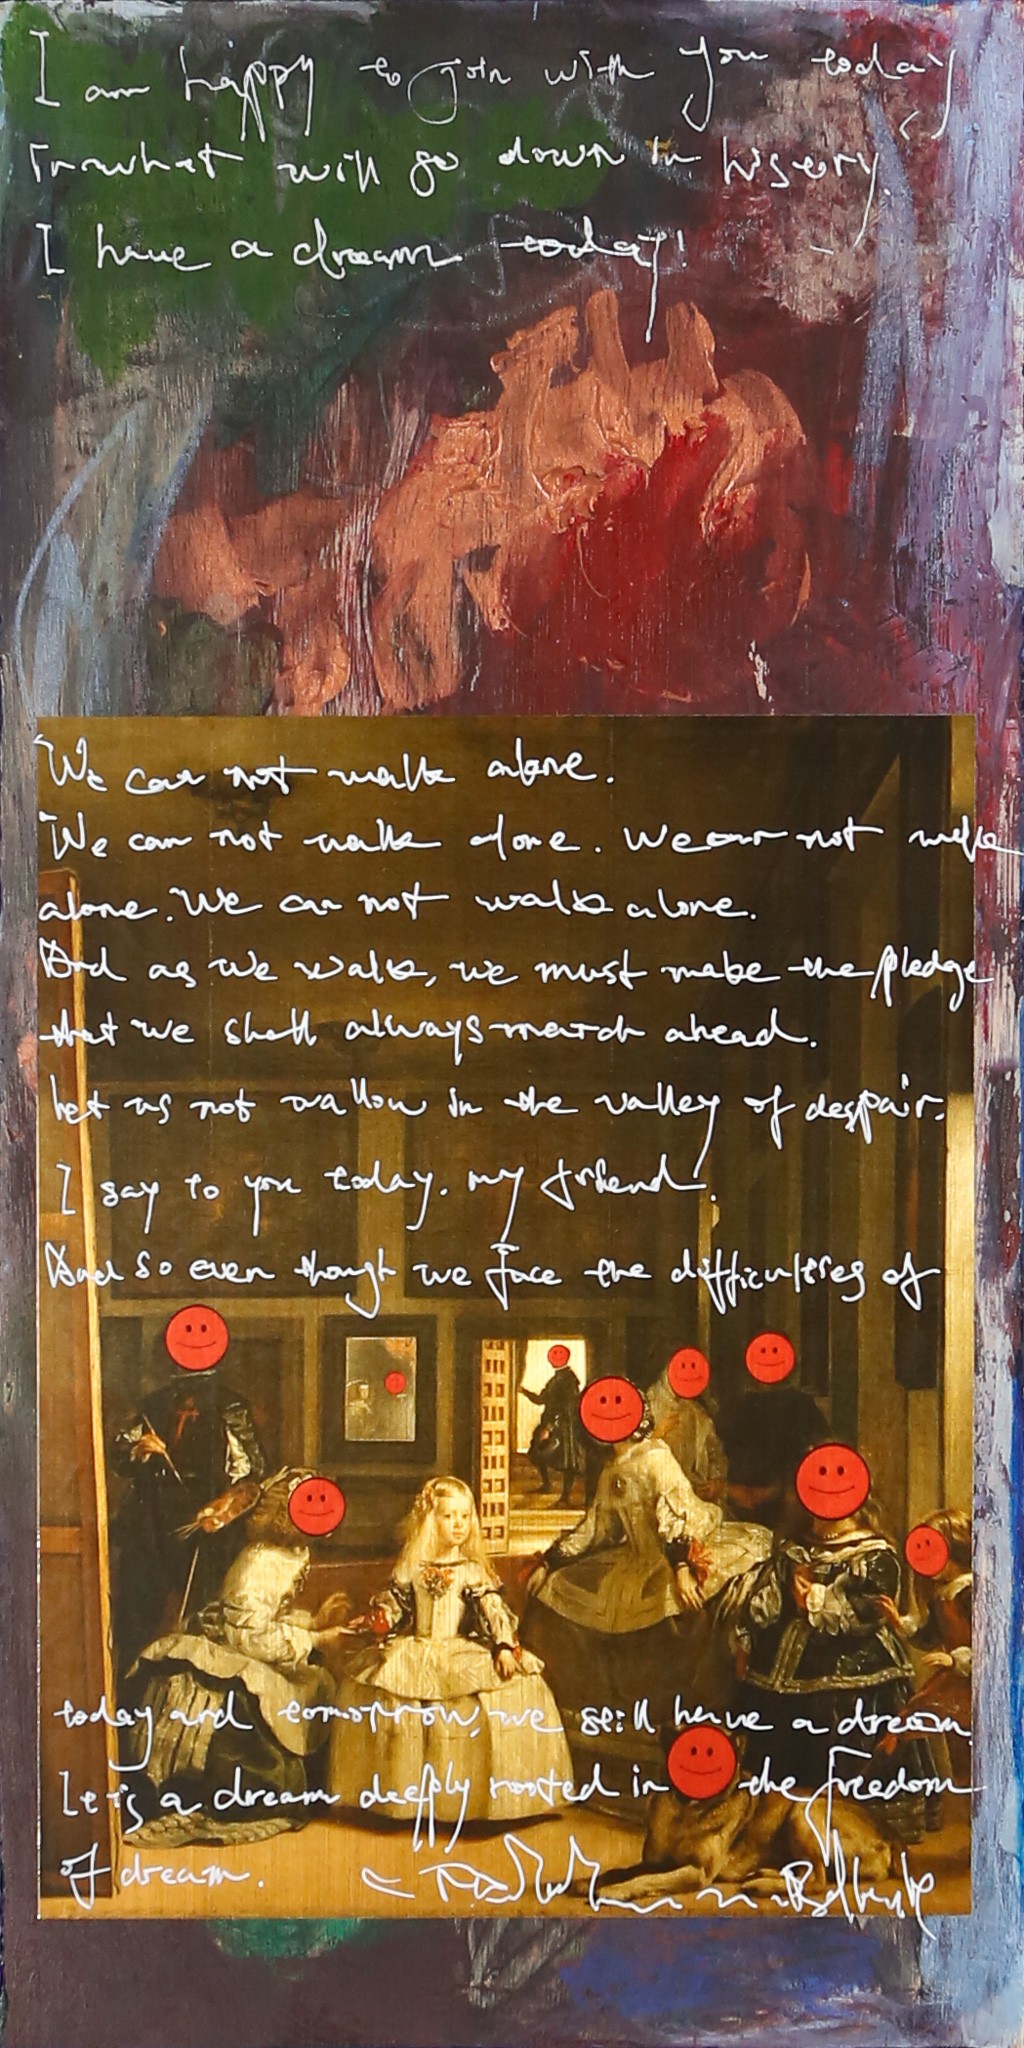 I am happy to join with you today
in what will go down in history.
I have a dream today!
We can not walk alone.
We can not walk alone. We can not walk
alone. We can not walk alone.
And as we walk, we must make the pledge
that we shall always march ahead.
Let us not wallow in the valley of despair.
I say to you today. my friend.
And so even though we face the difficulties of
today and tomorrow, we still have a dream.
It is a dream deeply rooted in the freedom
of dream.